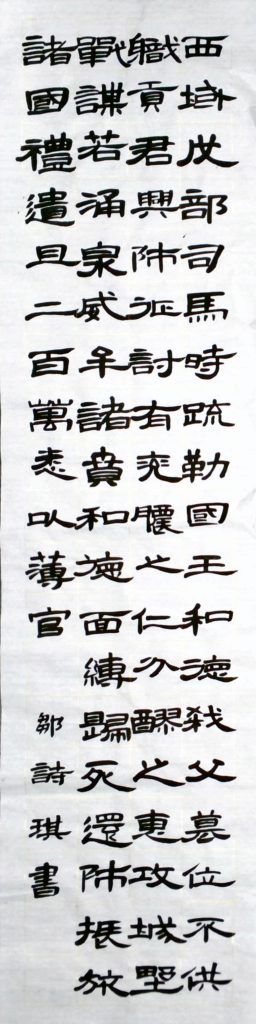 西域戊部司馬時疏勒國王和德弒父篡位不供
職貢君興師征討有兗膿之仁分醪之惠攻城野
戰謀若涌泉威牟諸賁和施面縛歸死還師振旅
諸國禮遺且二百萬悉以薄官
鄒詩琪書